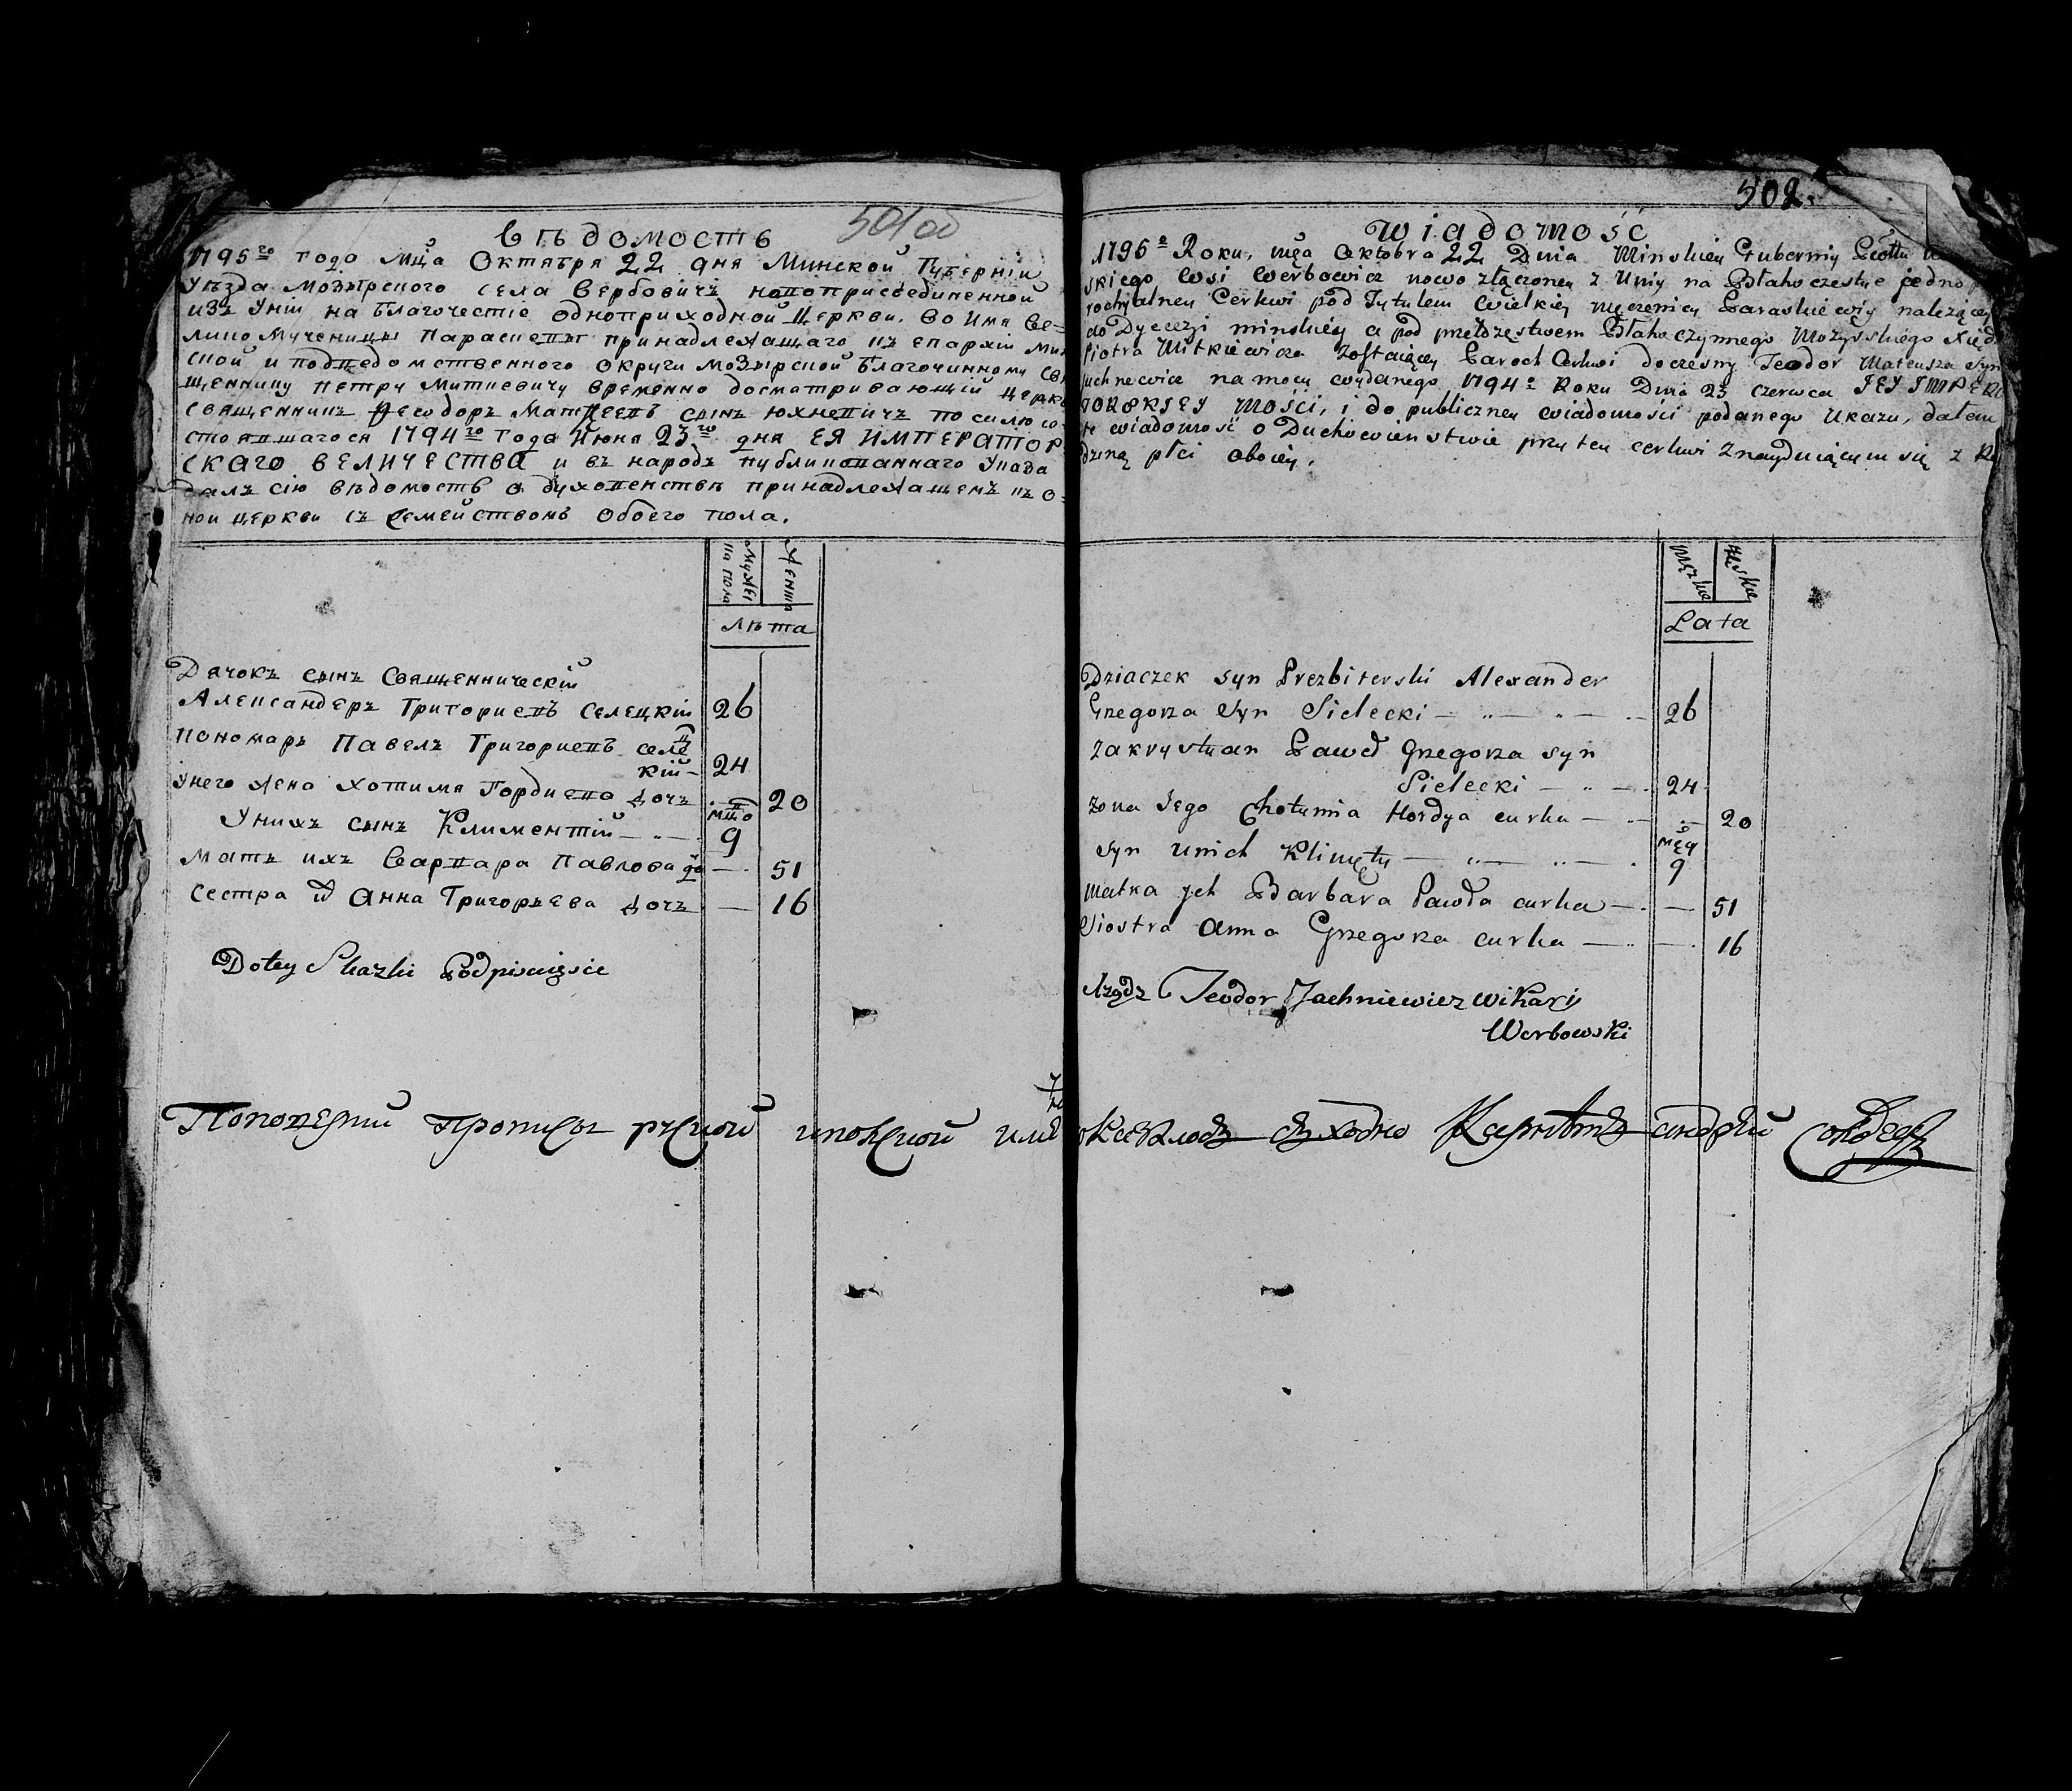 Вѣдомость
1795го года мца Октября 22 дня Минской Губерніи
Уѣзда Мозырского села Вербовичъ новоприсоединенной
изъ Уніи на благочестіе одноприходной Церкви. Во Имя Ве=
лико Мученицы Параскевы принадлежащаго къ епархіи Мин
ской и подведомственного округи мозырской благочинному
щеннику Петру Миткевичу временно досматривающій церкв
священникъ Феодоръ Матфеевъ сынъ Юхневичъ по силѣ со=
стоявшагося 1794го года Июня 23го дня ЕЯ ИМПЕРАТОР
СКАГО ВЕЛИЧЕСТВА и въ народъ публикованнаго Указа
далъ сію вѣдомость о духовенствѣ принадлежащемъ къ о=
ной церкви съ семействомъ обоего пола.
Мужес
ка пола
Женск
Лѣта
Дячокъ сынъ Священническій
Александеръ Григориевъ Селецкій 26
Пономарь Павелъ Григориевъ селец
кій 24
Унего жена Хотимя Гордиева дочь 20
Унихъ сынъ Климентій мцо 9
Мать ихъ Варвара Павлова до 51
Сестра Анна Григорьева дочь 16
Dotey Skazki Podpisuięsie
502.
Wiadomość
1795o Roku, mca Oktobra 22 Dnia Minskiey Gubernij
skiego Wsi Werbowicz nowo złączoney z Unij na Błahoczestye jedno
rochyalney Cerkwi pod Tytułem Wielkiey męczenicy Paraskiewiy należącey
do Dyecezji minskiey a pod
Piotra Mitkiewicza zostaiący Paroch Cerkwi doczesny Teodor Mateusza Syn
Juchnewicz na mocy wydanego 1794o Roku Dnia 23 Czerwca JEY IMPERA
TORSKIEY MOŚCI, i do publiczney wiadomości podanego Ukazu, dałem
te wiadomość o Duchowienstwie przy tey cerkwi Znayduiącym się z Ro
dziną płci oboiey.
męzka
żęska
Lata
Dziaczek syn Prezbiterski Alexander
Grzegorza Syn Sielecki 26
Zakrystyan Paweł Grzegorza syn
Sielecki 24
żona Jego Chotymia Hordya curka 20
Syn Unich Klimęty męcy 9
Matka jch Barbara Pawła curka 51
Siostra Anna Grzegorza curka 16
Xządz Teodor Jachniewicz wikarij
Werbowski